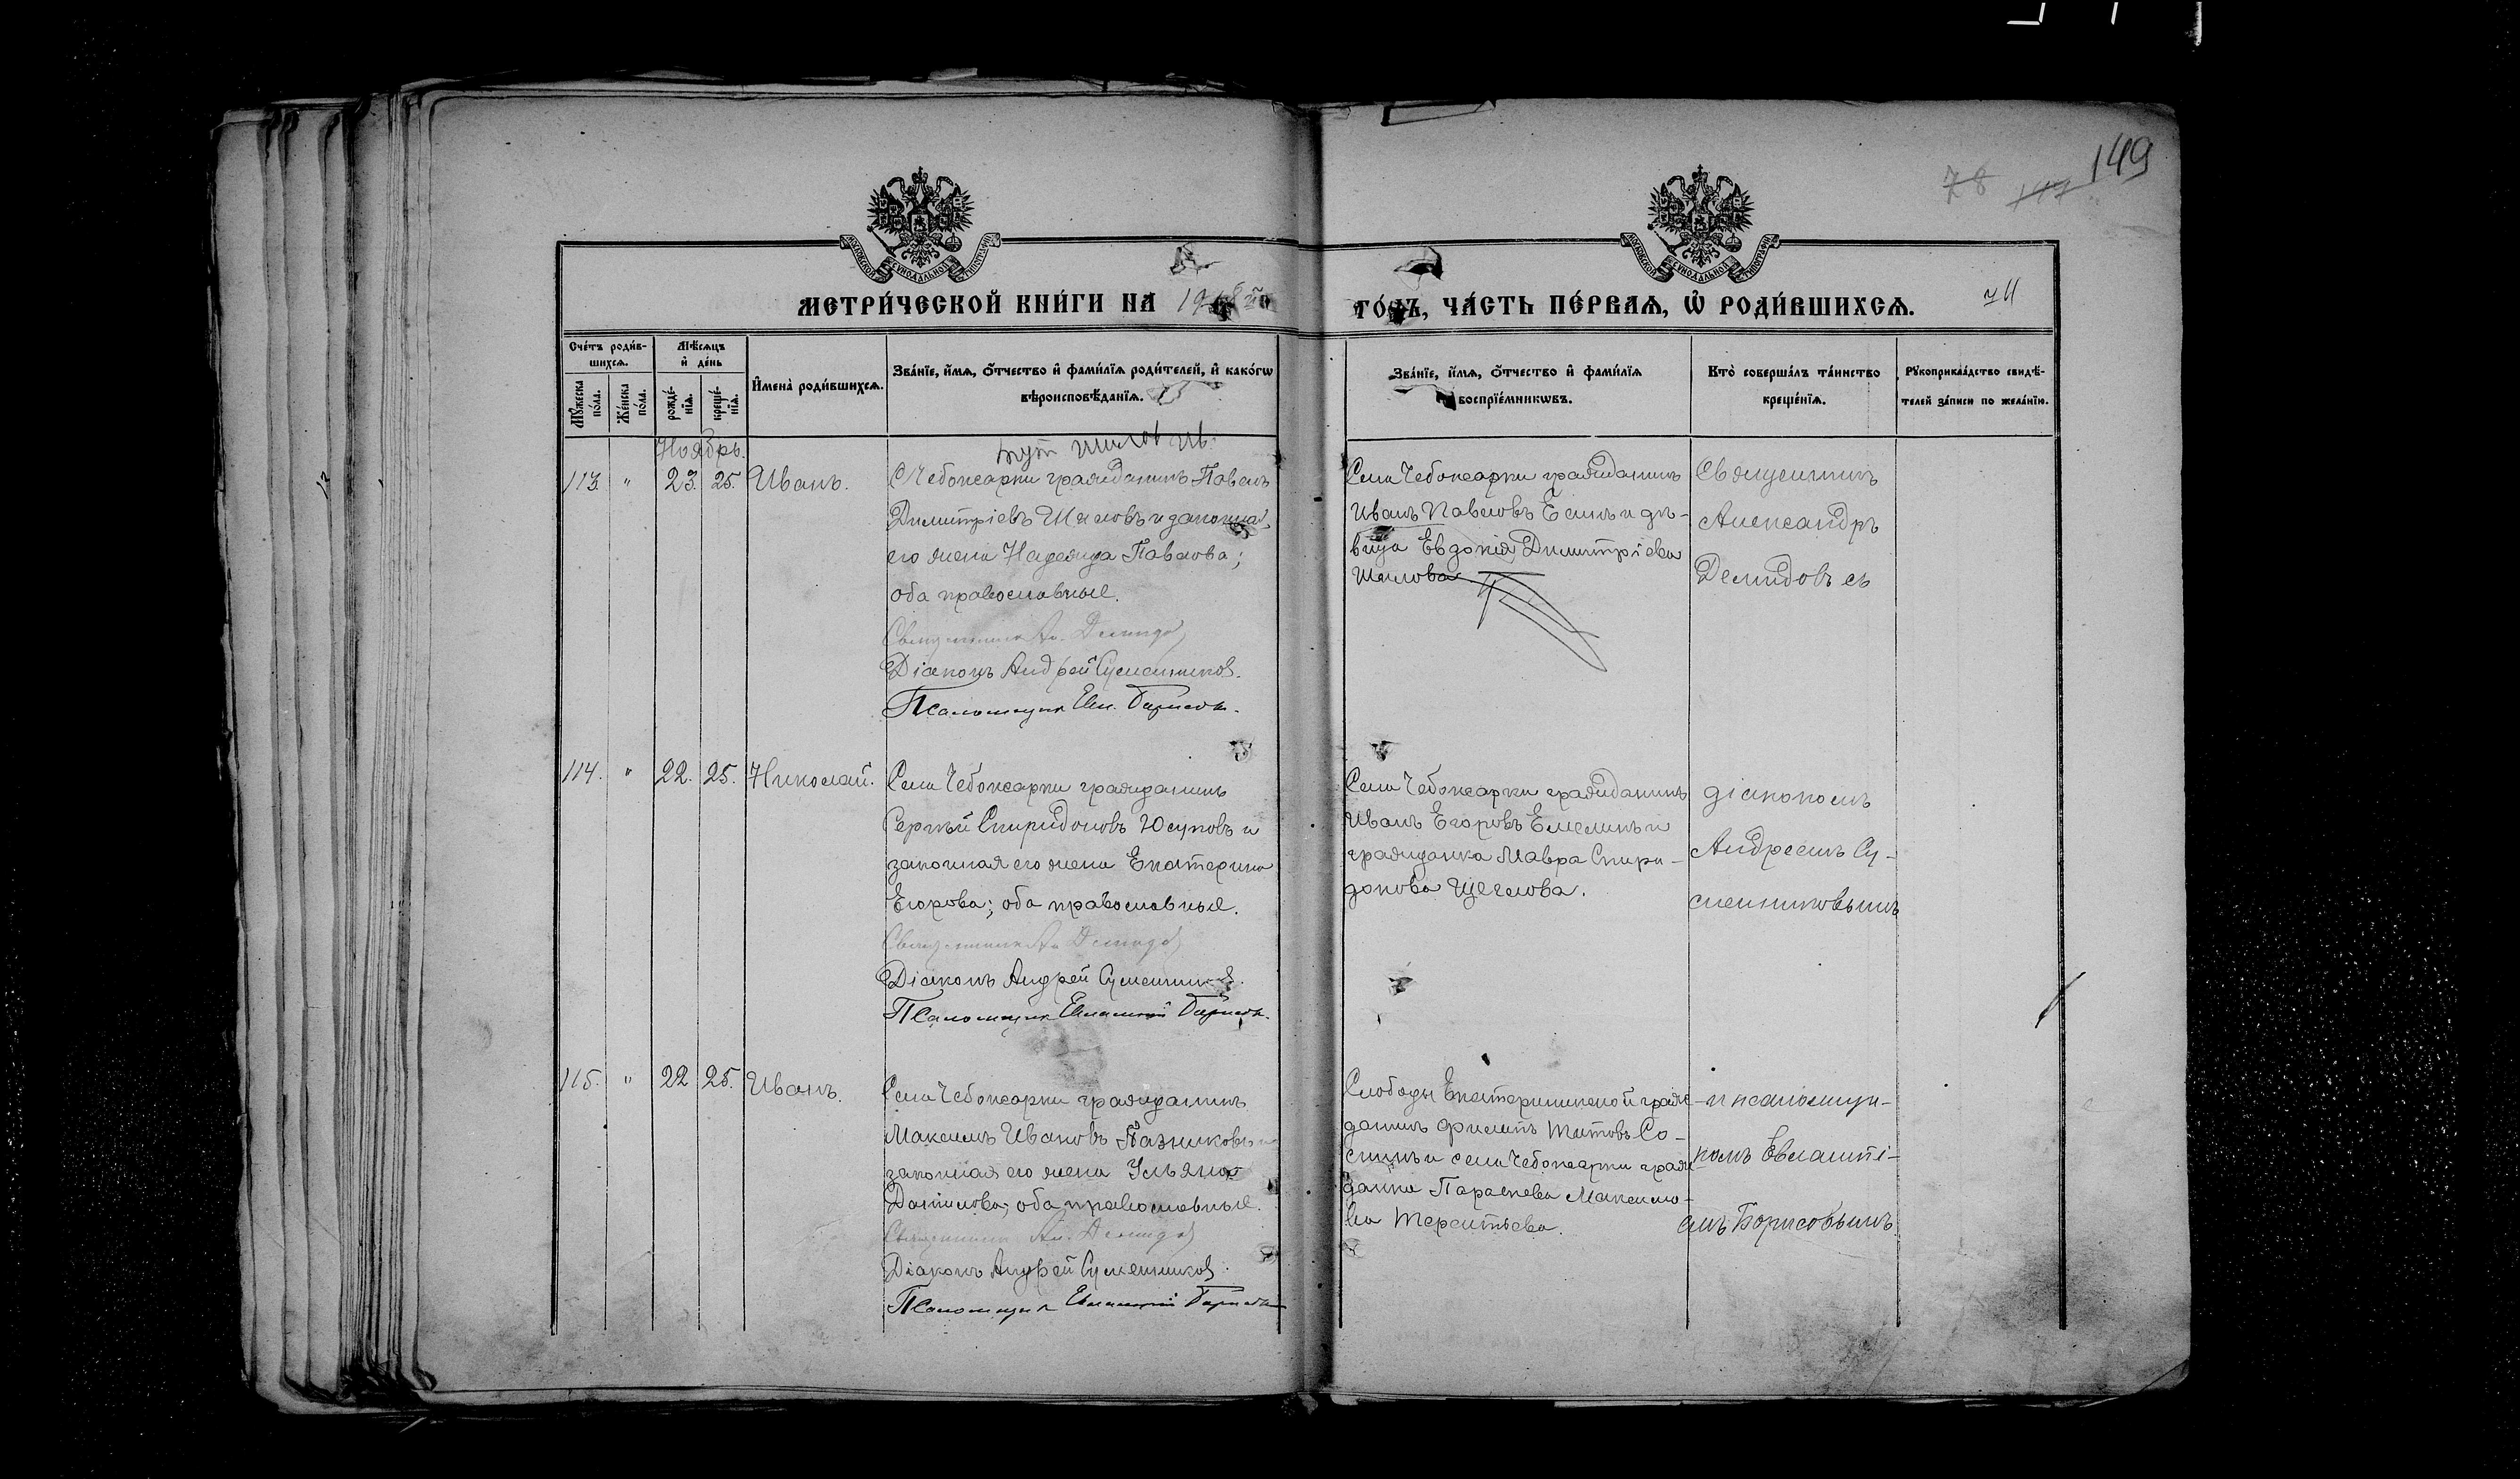 149
78 147
МОСКОВСКОЙ СѴНОДАЛЬНОЙ ТИПОГРАФІИ
МОСКОВСКОЙ СѴНОДАЛЬНОЙ ТИПОГРАФІИ
МЕТРИ́ЧЕСКОЙ КНИ́ГИ НА 1918 й
ГО́ДЪ, ЧА́СТЬ ПЕ́РВАЯ, Ѽ РОДИ́ВШИХСЯ.
Сче́тъ роди́в-
шихся.
Мꙋ́жеска пола.
Же́нска по́ла.
Мѣ́сяцъ
и҆ де́нь
рожде́-
нїя.
креще́-
нїя.
И҆мена̀ роди́вшихся.
Зва́нїе, и҆́мя, о҆́тчество и҆ фами́лїя роди́телей, и҆ како́гѡ
вѣроисповѣ́данїя.
Зва́нїе, и҆́мя, о҆́тчество и҆ фами́лїя
воспрїе́мникѡвъ.
Кто̀ соверша́лъ та́инство
креще́нїя.
Рꙋкоприкла́дство свидѣ́-
телей за́писи по жела́нїю.
Ноябрь.
113. " 23. 25. Иванъ.
С. Чебоксарки гражданинъ Павелъ
Димитріевъ Шиловъ и законная
его жена Надежда Павлова;
оба православные.
Священникъ Ал. Демидов
Діаконъ Андрей Сусленников.
Псаломщик Евл. Борисов.
Села Чебоксарки гражданинъ
Иванъ Павловъ Есинъ и дѣ-
вица Евдокія Димитріева
Шилова
Священникъ
Александръ
Демидовъ съ
114. " 22. 25. Николай.
Села Чебоксарки гражданинъ
Сергѣй Спиридоновъ Юсуповъ и
законная его жена Екатерина
Егорова; оба православные.
Священникъ Ал Демидов
Діаконъ Андрей Сусленников.
Псаломщик Евлампий Борисов.
Села Чебоксарки гражданинъ
Иванъ Егоровъ Емелинъ и
гражданка Мавра Спири-
донова Щеглова.
діакономъ
Андреемъ Су-
сленниковымъ
115. " 22 25. Иванъ.
Села Чебоксарки гражданинъ
Максимъ Ивановъ Пазниковъ и
законная его жена Ульяна
Данилова; оба православные.
Священникъ Ал. Демидов
Діаконъ Андрей Сусленников.
Псаломщик Евлампий Борисов
Слободы Екатерининской граж-
данинъ Филипъ Титовъ Со-
и села Чебоксарки граж-
данка Параскева Максимо-
ва Терентьева.
и псаломщи-
комъ Евлампі-
емъ Борисовымъ.